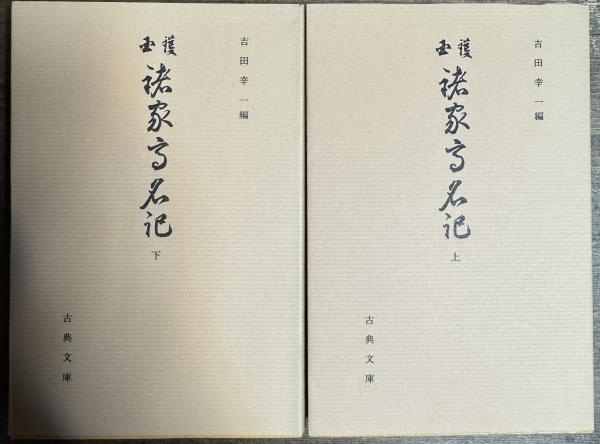 吉田幸一編
諸家高名記
上
古典文庫
吉田幸一編
諸家高名記
下
古典文庫